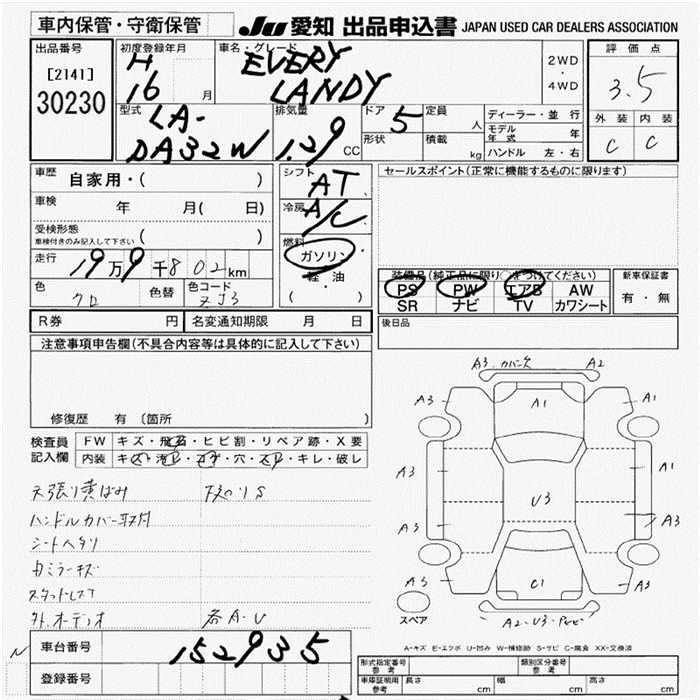 車内保管・守衛保管
JU 愛知 出品申込書 JAPAN USED CAR DEALERS ASSOCIATION
出品番号
[2141]
30230
初度登録年月
H
16 月
車名・グレード
EVERY
LANDY
2WD
・
4WD
評価点
3.5
外装 内装
C C
型式
LA-
DA32W
排気量
1.29 CC
ドア
5
形状
定員
人
積載
kg
ディーラー・並行
モデル年式 年
ハンドル 左・右
車歴
自家用・( )
車検
年 月( 日)
受検形態
車検付きのみ記入して下さい ( )
走行
19万9千802km
色
クロ
色替
色コード
ZJ3
シフト
AT
冷房
A/C
燃料
ガソリン
軽・油
( )
セールスポイント(正常に機能するものに限ります)
装備品(純正品に限り○をつけてください)
PS PW エアB AW
SR ナビ TV カワシート
新車保証書
有・無
R券 円
名変通知期限 月 日
後日品
注意事項申告欄(不具合内容等は具体的に記入して下さい)
修復歴 有 〔箇所 〕
検査員記入欄
FW キズ・飛石・ヒビ割・リペア跡・X要
内装 キズ・汚レ・コゲ・穴・スレ・キレ・破レ
天張り黄ばみ
ハンドルカバー取付
シートヘタリ
カミラーキズ
スタッドレス
外.オーディオ 各A・U
A3 カバー欠 A2
A3 A1 A1
A3 A1
U3
A3 A3
A3 C1 A3
スペア
A2-U3-
A-キズ E-エクボ U-凹み W-補修跡 S-サビ C-腐食 XX-交換済
車台番号
152935
登録番号
形式指定番号 参考
類別区分番号 参考
車庫証明用 参考 長さ cm 幅 cm 高さ cm